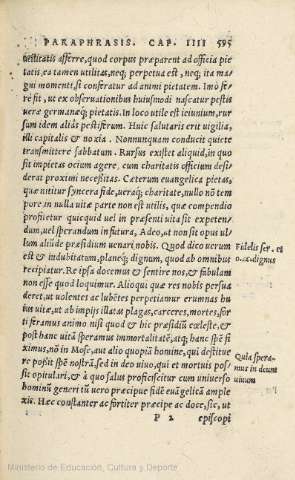 PARAPHRASIS. CAP. IIII 595
utilitatis afferre, quod corpus præparent ad officia pie
tatis, ea tamen utilitas, neq; perpetua est, neq; ita ma
gni momenti, si conferatur ad animi pietatem. Imò fe
rè fit, ut ex obseruationibus huiusmodi nascatur pestis
ueræ germanæq; pietatis. In loco utile est ieiunium, rur
sum idem aliâs pestiferum. Huic salutaris erit uigilia,
illi capitalis & noxia. Nonnunquam conducit quiete
transmittere sabbatum. Rursus existit aliquid, in quo
sit impietas ocium agere, cum charitatis officium desy
derat proximi necessitas. Cæterum euangelica pietas,
quæ nititur syncera fide, ueraq; charitate, nullo nõ tem
pore in nulla uitæ parte non est utilis, quæ compendio
profietur quicquid uel in præsenti uita sit expeten
dum, uel sperandum in futura, Adeo, ut non sit opus ul
lum aliũde præsidium uenari nobis. Quod dico uerum
est & indubitatum, planeq; dignum, quod ab omnibus
recipiatur. Re ipsa docemus & sentire nos, & fabulam
non esse quod loquimur. Alioqui quæ res nobis persua
deret, ut uolentes ac lubẽtes perpetiamur ærumnas hu
ius uitæ, ut ab impijs illatas plagas, carceres, mortes, for
ti feramus animo nisi quod & hic præsidiũ cœleste, &
post hanc uitã speramus immortalitatẽ, atq; hanc spẽ fi
ximus, nõ in Mose, aut alio quopiã homine, qui destitue
re possit spẽ nostrã, sed in deo uiuo, qui et mortuis pos
sit opitulari, & à quo salus proficiscitur cum uniuerso
hominũ generi tũ uero præcipue fidẽ euãgelicã ample
xis. Hæc constanter ac fortiter præcipe ac doce, sic, ut
P 2 episcopi
Fidelis ser. et
o. ac. dignus
Qula spera-
mus in deum
uiuum
Ministerio de Educación, Cultura y Deporte